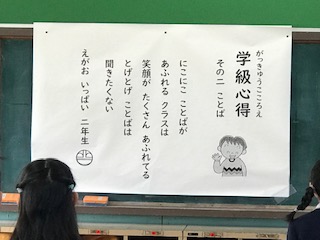 がっきゅうこころえ
学級心得
その二 ことば
にこにこ ことばが
あふれる クラスは
笑顔が たくさん あふれてる
とげとげ ことばは
聞きたくない
えがお いっぱい 二年生